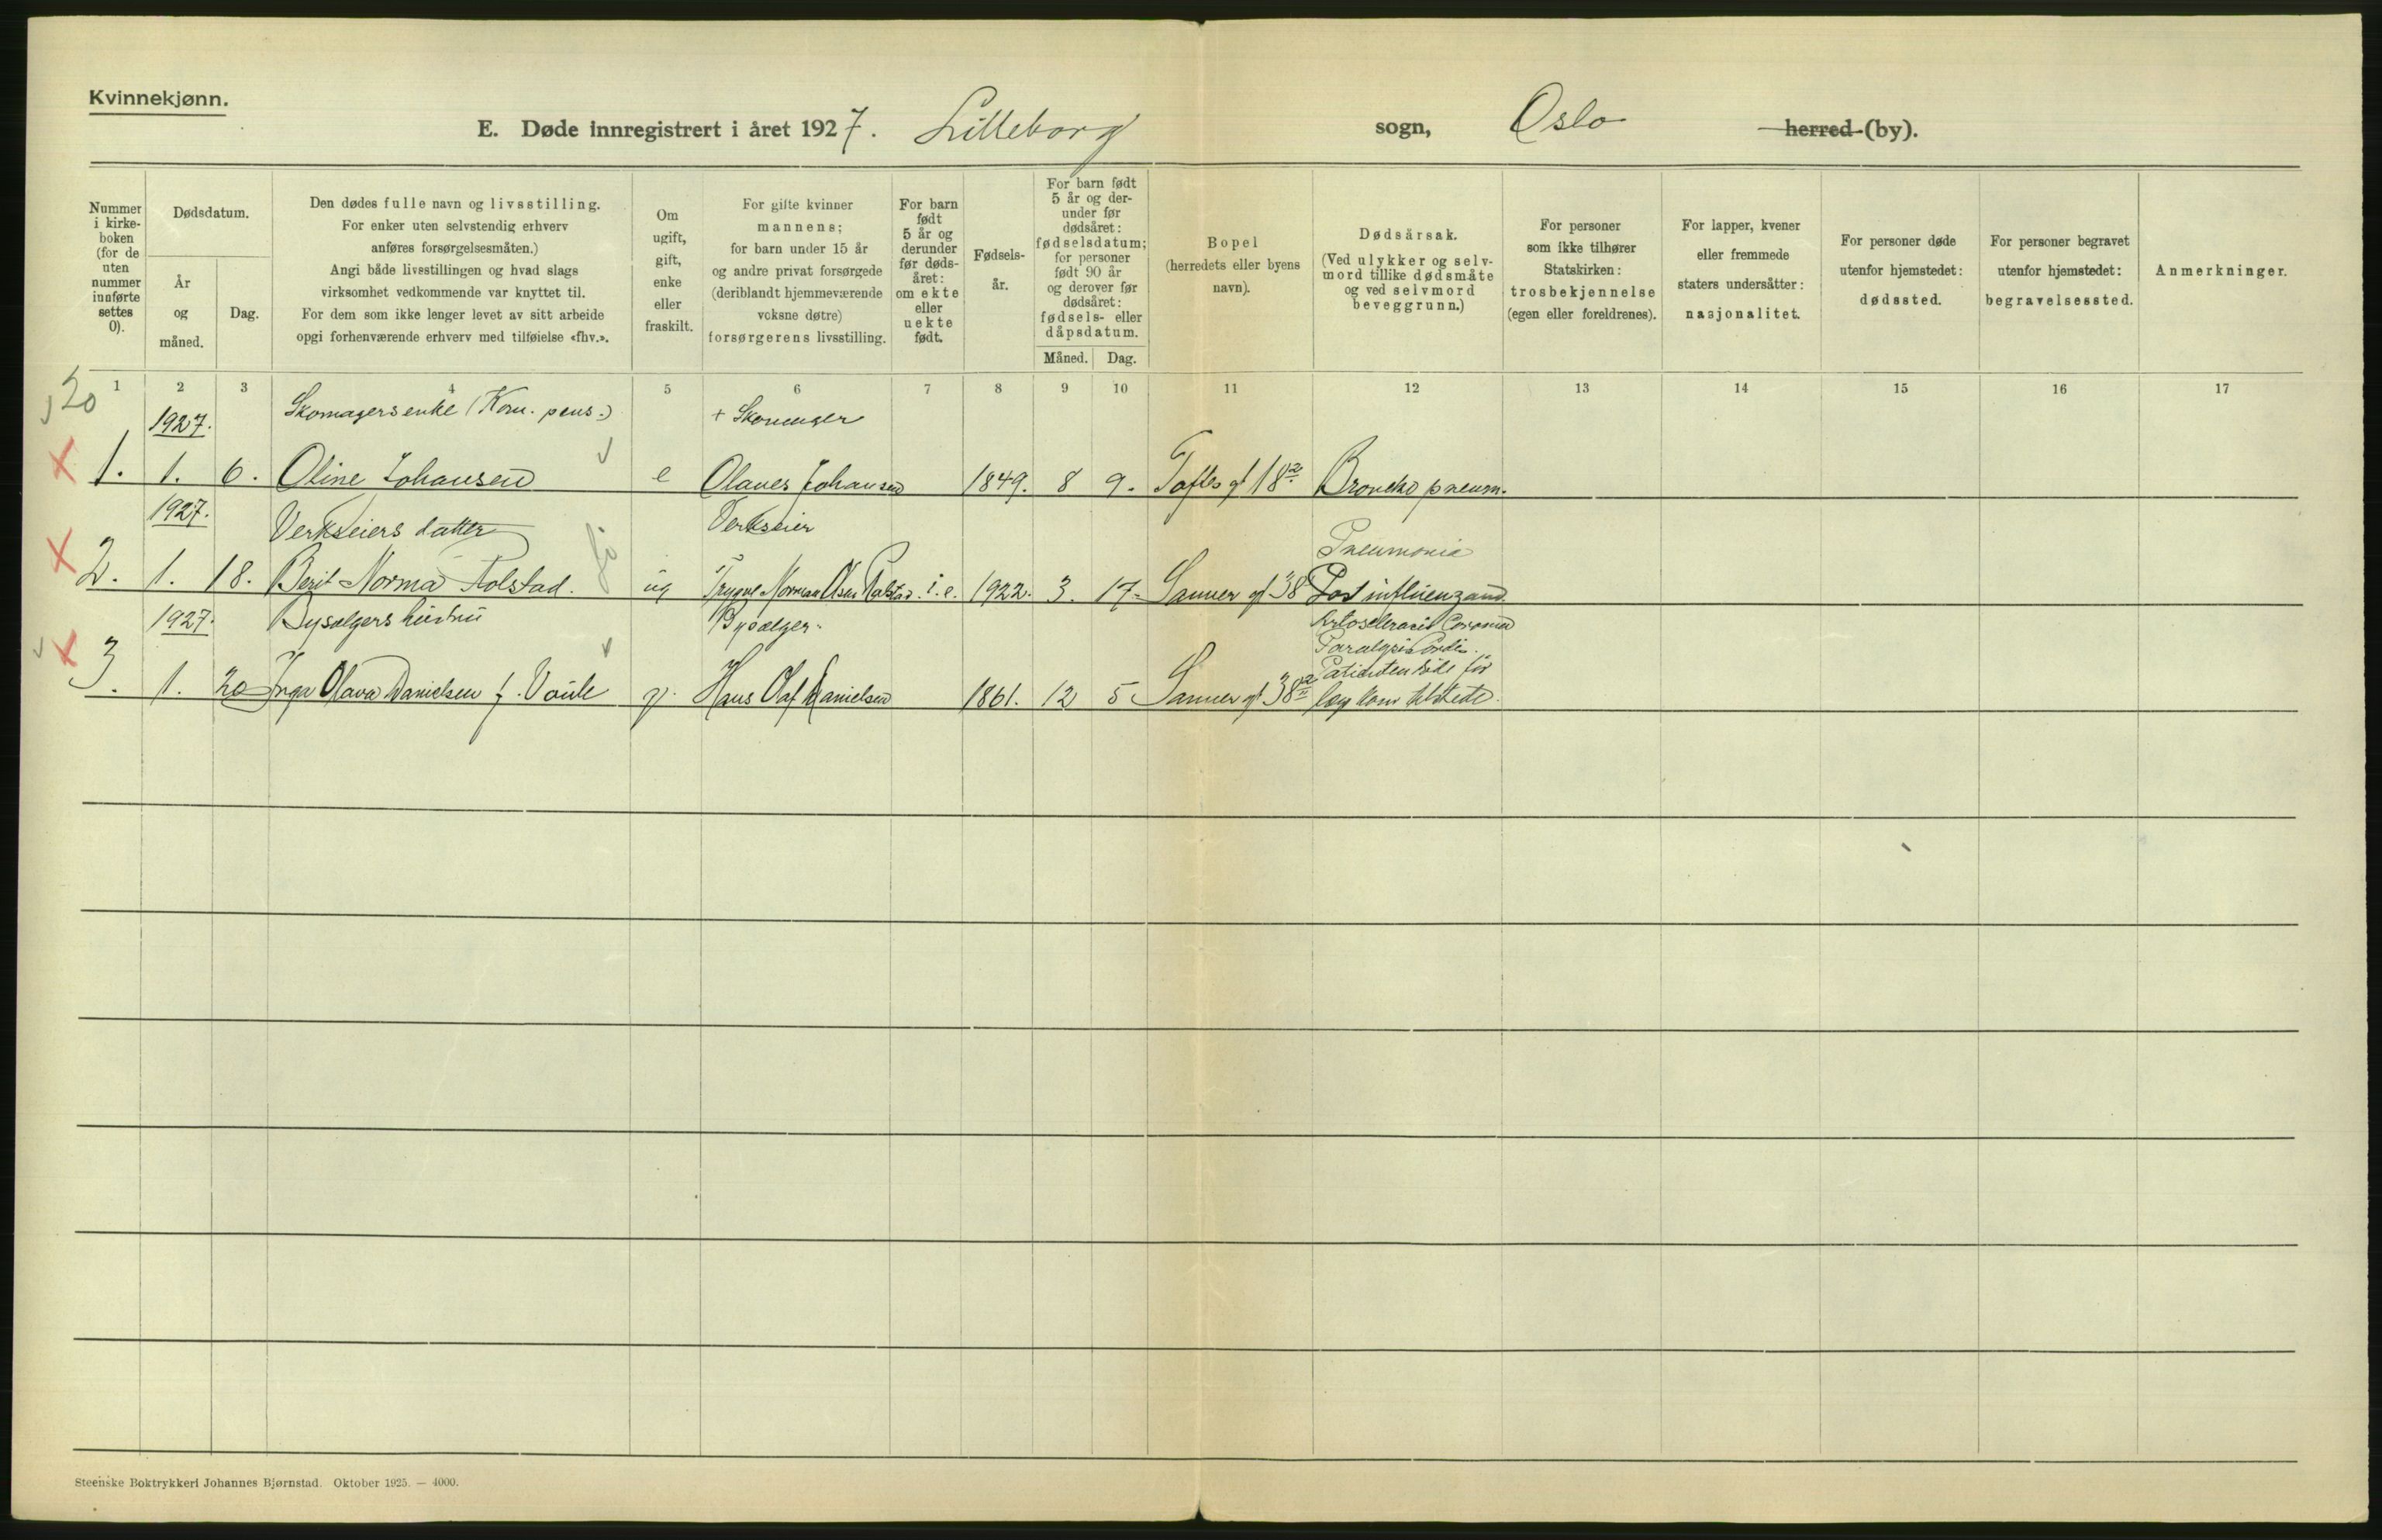 Kvinnekjønn.
E. Døde innregistrert i året 1927. Lilleborg sogn, Oslo herred (by).
Nummer i kirke- boken (for de uten nummer innførte settes 0).
Dødsdatum.
År og måned.
Dag.
Den dødes fulle navn og livsstilling.
For enker uten selvstendig erhverv
anføres forsørgelsesmåten.)
Angi både livsstillingen og hvad slags
virksomhet vedkommende var knyttet til.
For dem som ikke lenger levet av sitt arbeide
opgi forhenværende erhverv med tilføielse «fhv.».
Om ugift, gift, enke eller fraskilt.
For gifte kvinner
mannens;
for barn under 15 år
og andre privat forsørgede
(deriblandt hjemmeværende
voksne døtre)
forsørgerens livsstilling.
For barn født 5 år og derunder før døds- året: om ekte eller uekte født.
Fødsels- år.
For barn født 5 år og der- under før dødsåret: fødselsdatum; for personer født 90 år og derover før dødsåret: fødsels- eller dåpsdatum.
Måned. Dag.
Bopel
(herredets eller byens
navn).
Dødsårsak.
(Ved ulykker og selv-
mord tillike dødsmåte
og ved selvmord
beveggrunn.)
For personer
som ikke tilhører
Statskirken:
trosbekjennelse
(egen eller foreldrenes).
For lapper, kvener
eller fremmede
staters undersåtter:
nasjonalitet.
For personer døde
utenfor hjemstedet:
dødssted.
For personer begravet
utenfor hjemstedet:
begravelsessted.
Anmerkninger.
1 2 3 4 5 6 7 8 9 10 11 12 13 14 15 16 17
20
1927. Skomagersenke (Kom. pens.) + Skomager
1. 1. 6. Oline Johansen e Olaves Johansen 1849. 8 9. Toftes gt 18² Broncho pneum.
1927. Verkseiers datter Verkseier Pneumonia
2. 1. 18. Berit Norma Rolstad. ug Trygve Norman Olsen Rolstad. i. e. 1922. 3. 17. Sanner gt 38 Post influenzam
1927. Bysælgers hustru Bysælger. Paralysis Cordis.
3. 1. 20 Inga Olava Danielsen f. g. Hans Olaf Danielsen 1861. 12 5 Sanner gt 38 læg kom tilstede.
Steenske Boktrykkeri Johannes Bjørnstad. Oktober 1925. — 4000.